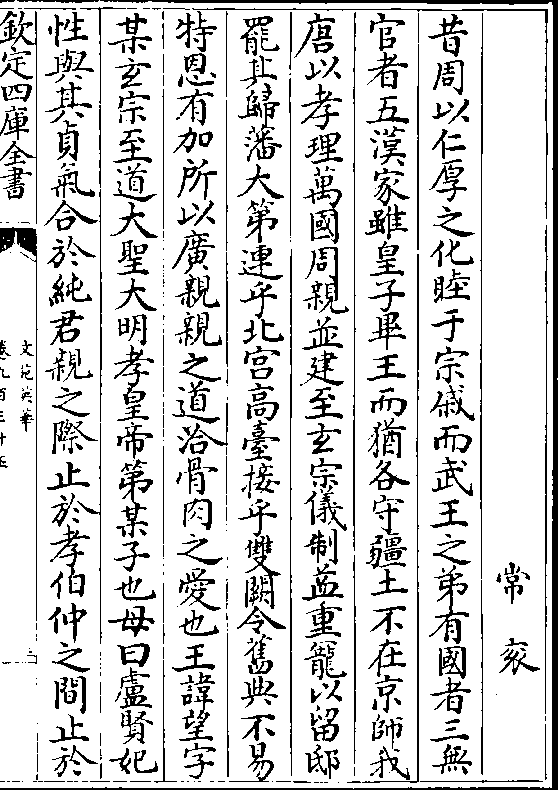 常衮
昔周以仁厚之化睦于宗戚而武王之弟有國者三無
官者五漢家雖皇子畢王而猶各守疆土不在京師我
唐以孝理萬國周親並建至玄宗儀制益重寵以留邸
罷其歸藩大第連乎北宮高臺接乎雙闕令舊典不易
特恩有加所以廣親親之道洽骨肉之愛也王諱望字
某玄宗至道大聖大明孝皇帝第某子也母曰盧賢妃
性與其貞氣合於純君親之際止於孝伯仲之間止於
欽定四庫全書
文苑英華
卷九百三十五
三